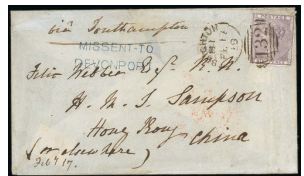 via Southampton
MISSENT-TO
DEVONPORT
Felix Webber Esqr. R.N.
H. M. S. Sampson
Hong Kong
China
(or elsewhere)
Feby 17.